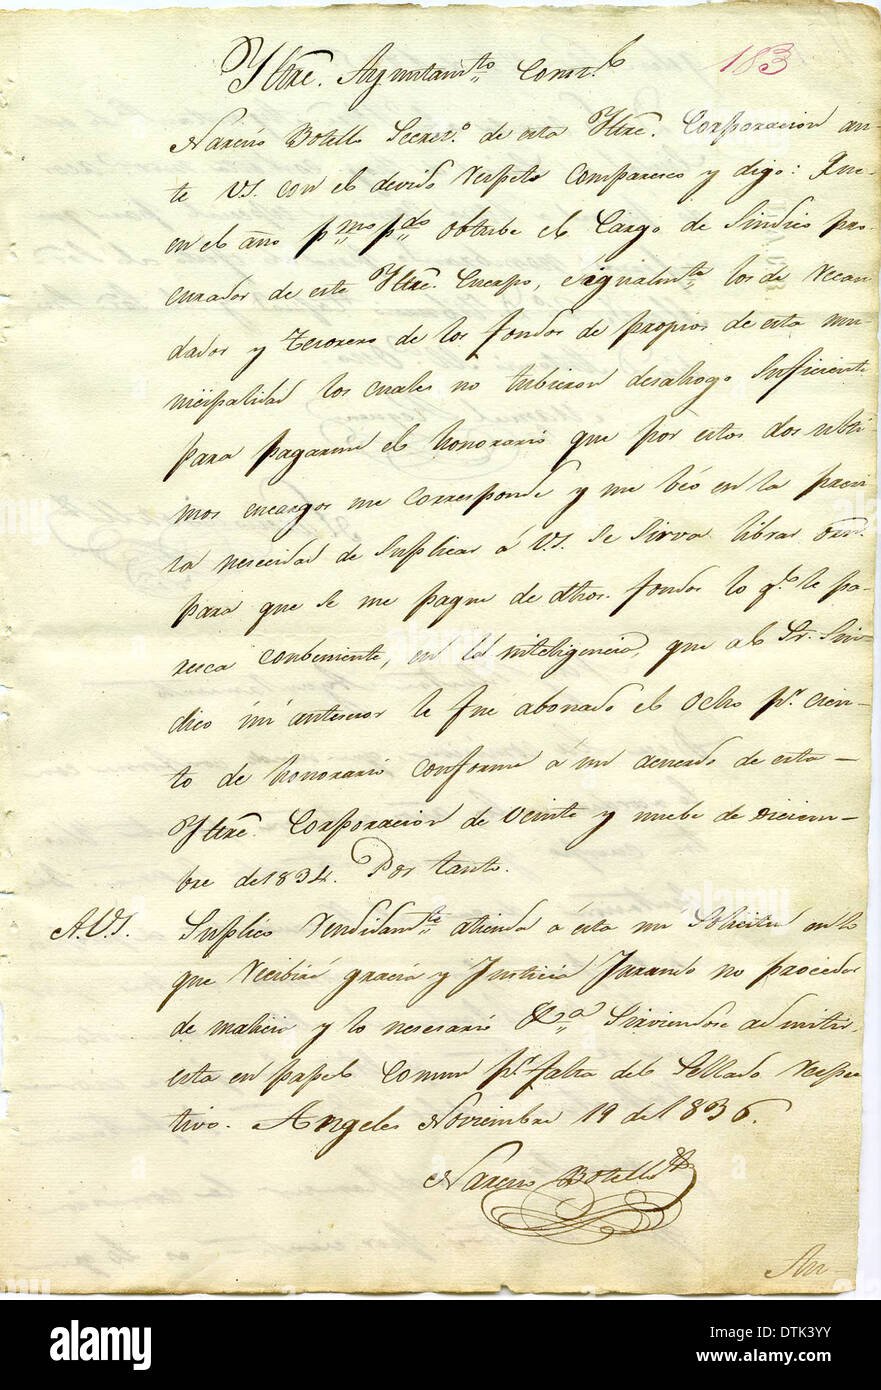 Yltre. Ayuntam.to Const.l
183
Narciso Botello Secret.o de esta Yltre. Corporacion an-
te VS. con el devido respeto comparesco y digo: Que
en el año p.mo p.do obtube el Cargo de Sindico pro-
curador de este Yltre. Cuerpo, Sigualm.te los de recau
dador y tesorero de los fondos de propios de esta mu-
nicipalidad los cuales no tubieron desahogo suficiente
para pagarme el honorario que por estos dos ulti-
mos encargos me corresponde y me beo en la preci
sa nesecidad de suplicar á VS. se sirva librar orn.
para que se me pague de dhos. fondos lo q.e le pa-
resca conbeniente, en la inteligencia, que al Sr. Sin-
dico mi antesesor le fue abonado el ocho p.r cien-
to de honorario conforme á un acuerdo de esta
Yltre. Corporacion de veinte y nuebe de Diciem-
bre de 1834. Por tanto.
A.V.S. Suplico rendidam.te atienda á esta mi solicitud en lo
que recibiré gracia y Justicia Jurando no proceder
de malicia y lo nesesario &.a Sirviendose admitir
esta en papel comun p.r falta del Sellado respec
tivo. Angeles Noviembre 19 de 1836.
Narciso Botello
An-
alamy
Image ID: DTK3YY
www.alamy.com